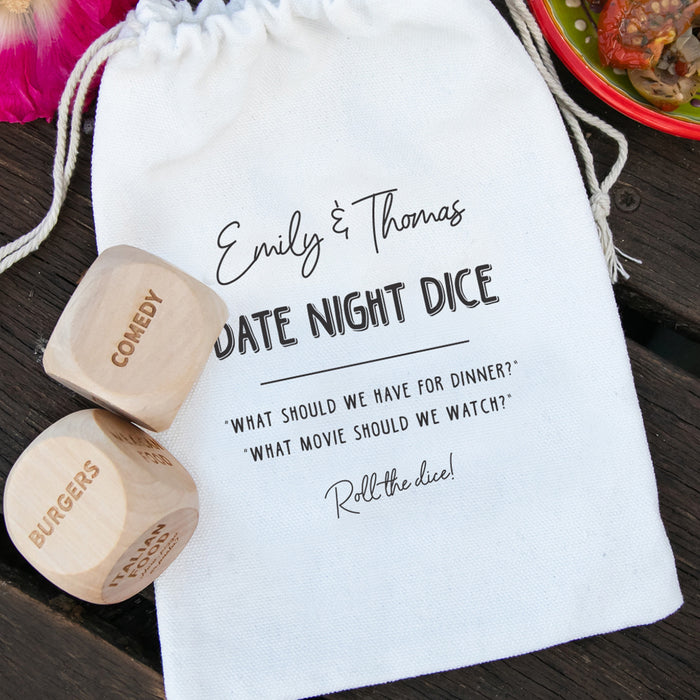 Emily & Thomas
DATE NIGHT DICE
"WHAT SHOULD WE HAVE FOR DINNER?"
"WHAT MOVIE SHOULD WE WATCH?"
Roll the dice!
COMEDY
BURGERS
FOOD
ITALIAN
FOOD